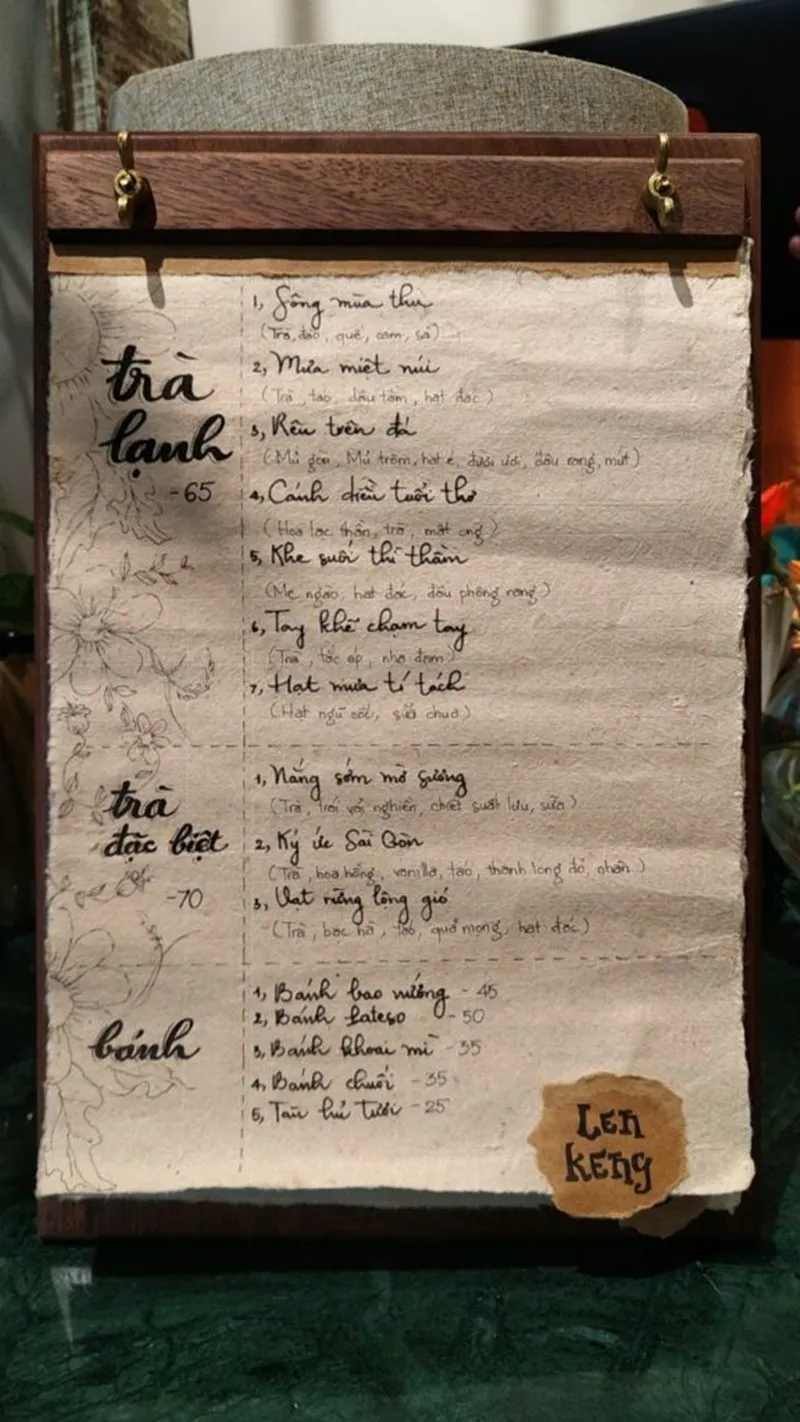 trà
lạnh
-65
1, Sông mùa thu
(Trà, đào, quế, cam, sả)
2, Mưa miệt núi
(Trà, táo, dâu tằm, hạt đác)
3, Rêu trên đá
(Mủ gòn, Mủ trôm, hạt é, đười ươi, đậu rong, mứt)
4, Cánh diều tuổi thơ
(Hoa lạc thần, trà, mật ong)
5, Khe suối thì thầm
(Me ngào, hạt đác, đậu phộng rang)
6, Tay khẽ chạm tay
(Trà, tắc ép, nha đam)
7, Hạt mưa tí tách
(Hạt ngũ cốc, sữa chua)
trà
đặc biệt
-70
1, Nắng sớm mờ sương
(Trà, trái vải nghiền, chiết suất lựu, sữa)
2, Ký ức Sài Gòn
(Trà, hoa hồng, vanilla, táo, thanh long đỏ, nhãn)
3, Vạt rừng lộng gió
(Trà, bạc hà, táo, quả mọng, hạt đác)
bánh
1, Bánh bao nướng - 45
2, Bánh - 50
3, Bánh khoai mì - 35
4, Bánh chuối - 35
5, Tàu hủ tươi - 25
Len
Keng